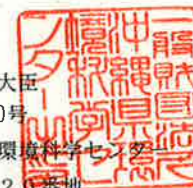 大臣
0号
環境科学センター
29番地
一般財団法
人沖縄県
環境科学セ
ンター